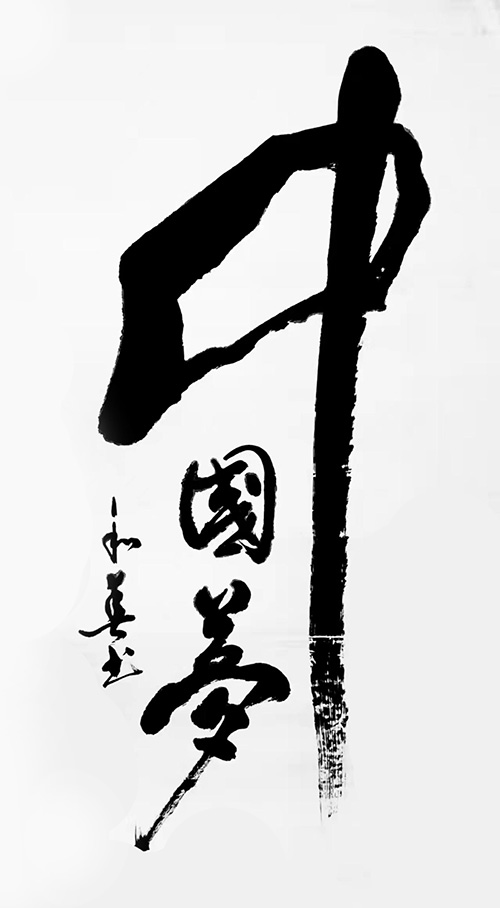 中國夢
和美书